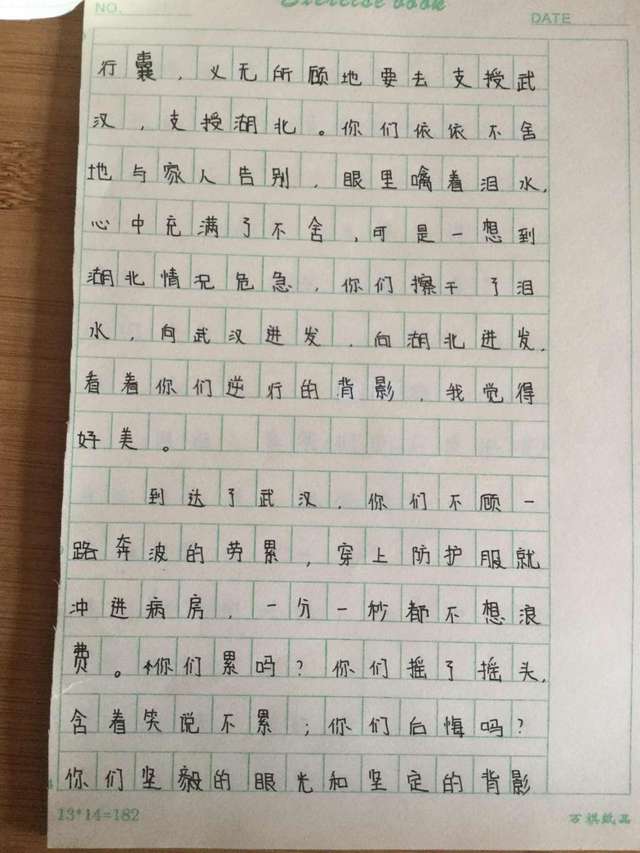 NO.
Exercise book
DATE
行囊，义无所顾地要去支授武
汉，支授湖北。你们依依不舍
地与家人告别，眼里噙着泪水，
心中充满了不舍，可是一想到
湖北情况危急，你们擦干了泪
水，向武汉进发，向湖北进发，
看着你们逆行的背影，我觉得
好美。
到达了武汉，你们不顾一
路奔波的劳累，穿上防护服就
冲进病房，一分一秒都不想浪
费。你们累吗？你们摇了摇头，
含着笑说不累；你们后悔吗？
你们坚毅的眼光和坚定的背影
13*14=182
万祺纸品